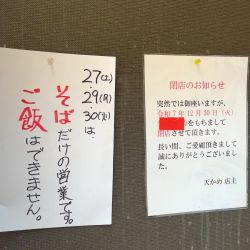 27(土)
29(月)
30(火)は
そばだけの営業です。
ご飯はできません。
閉店のお知らせ
突然では御座いますが、
令和7年12月30日(火)
をもちまして
閉店させて頂きます。
長い間、ご愛顧頂きまして
誠にありがとうございまし
た。
天かめ 店主